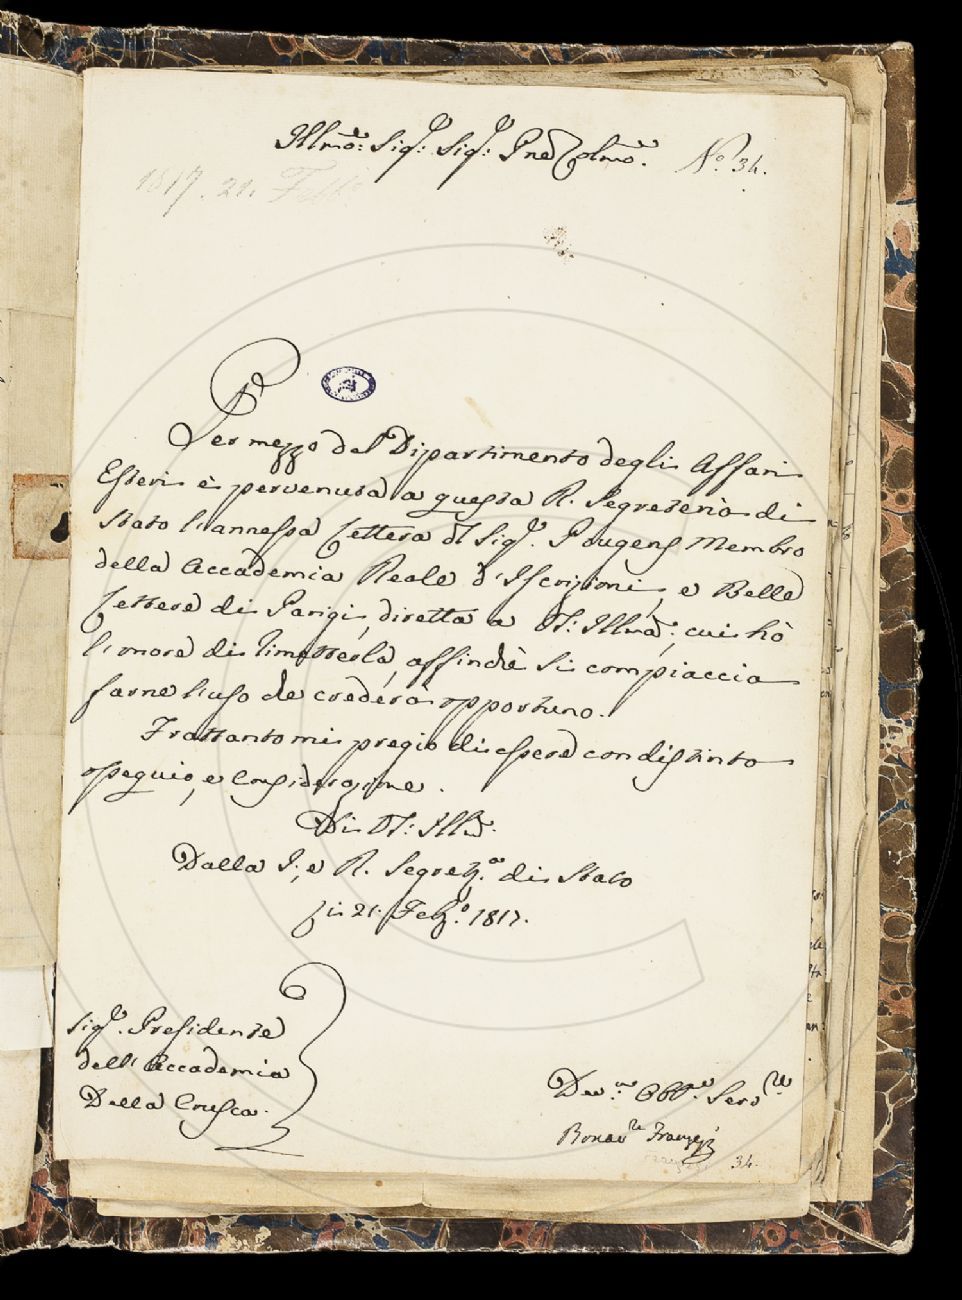 Illmo: Sigr: Sigr: Pne Colmo.
No. 34.
1817. 21. Febb.
Per mezzo del Dipartimento degli Affari
Esteri è pervenuta a questa R. Segreteria di
Stato l'annessa Lettera del Sigr. Pougens Membro
della Accademia Reale d'Iscrizioni, e Belle
Lettere di Parigi, diretta a VS: Illma; cui hò
l'onore di rimetterla, affinchè si compiaccia
farne l'uso che crederà opportuno.
Frattanto mi pregio di essere con distinto
ossequio, e Considerazione.
Di VS: Illma.
Dalla I., e R. Segretria. di Stato
Li 21. Febo. 1817.
Sigr. Presidente
dell'Accademia
Della Crusca.
Devmo. Obbmo. Servre.
Bonavre
34.